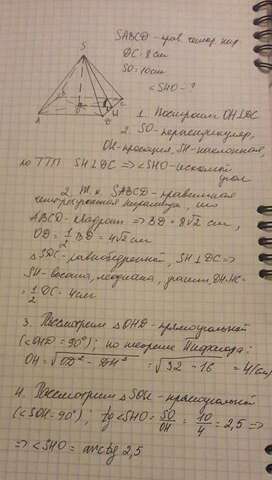 SABCD - прав. четыр. пир
DC = 8 см
SO = 10 см
<SHO - ?
S
A
B
C
D
O
H
1. Построим OH⊥DC
2. SO - перпендикуляр,
OH - проекция, SH - наклонная,
по ТТП SH⊥DC => <SHO - искомый
угол
2. Т.к. SABCD - правильная
четырехугольная пирамида, то
ABCD - квадрат => BD = 8√2 см,
OD = 1/2 BD = 4√2 см
△SDC - равнобедренный, SH⊥DC =>
SH - высота, медиана, значит DH = HC =
= 1/2 DC = 4 см
3. Рассмотрим △OHD - прямоугольный
(<OHD = 90°); по теореме Пифагора:
OH = √OD² - DH² = √32 - 16 = 4 (см)
4. Рассмотрим △SOH - прямоугольный
(<SOH = 90°); tg <SHO = SO/OH = 10/4 = 2,5 =>
=> <SHO = arctg 2,5